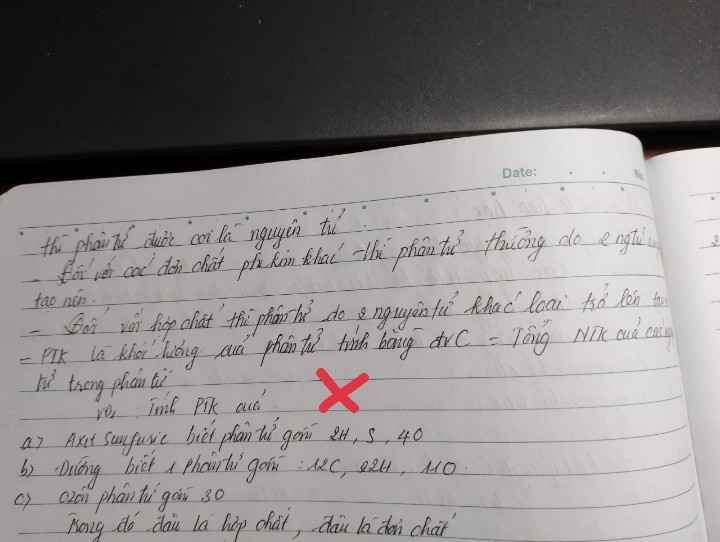 Date:
thì phân tử được coi là nguyên tử
- Đối với các đơn chất phi kim khác thì phân tử thường do 2 ngtử
tạo nên.
- Đối với hợp chất thì phân tử do 2 nguyên tử khác loại trở lên
- PTK là khối lượng của phân tử tính bằng đvC = Tổng NTK của các
tử trong phân tử
Tính PTK của
a) Axit sunfuric biết phân tử gồm 2H, S, 4O
b) Đường biết 1 phân tử gồm : 12C, 22H, 11O.
c) ozon phân tử gồm 3O
Trong đó đâu là hợp chất, đâu là đơn chất